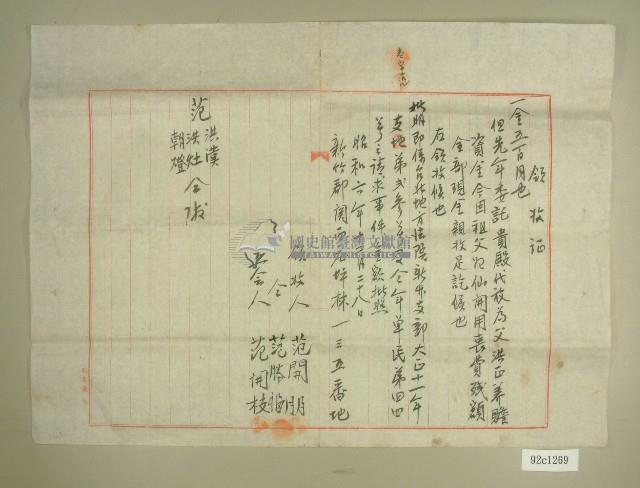 領收証
一金五百円也
但先年委託貴殿代放為父洪正养贍
資金今因租父 仙開用喪費残額
全部現金親收足訖候也
右領收候也
批明即係台北地方法院新竹支部大正十一年
支地第弍参 仝年单民第四四
号之請求事件 批照
昭和六年 月二十八日
新竹郡関西庄坪林一三五番地
領收人 范開朋
仝 范勝
立会人 范開枝
范
洪濮
洪灶
朝燈
仝
國史館臺灣文獻館
TAIWAN HISTORICA
92c1269